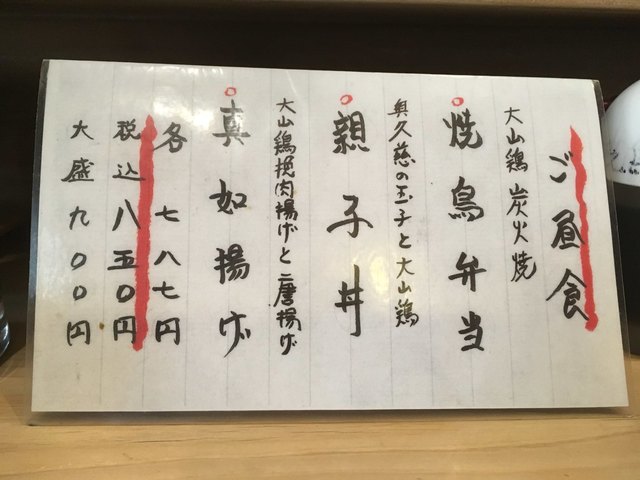 ご昼食
大山鶏 炭火焼
焼鳥弁当
奥久慈の玉子と大山鶏
親子丼
大山鶏挽肉揚げと唐揚げ
真如揚げ
各 七八七円
税込八五〇円
大盛九〇〇円